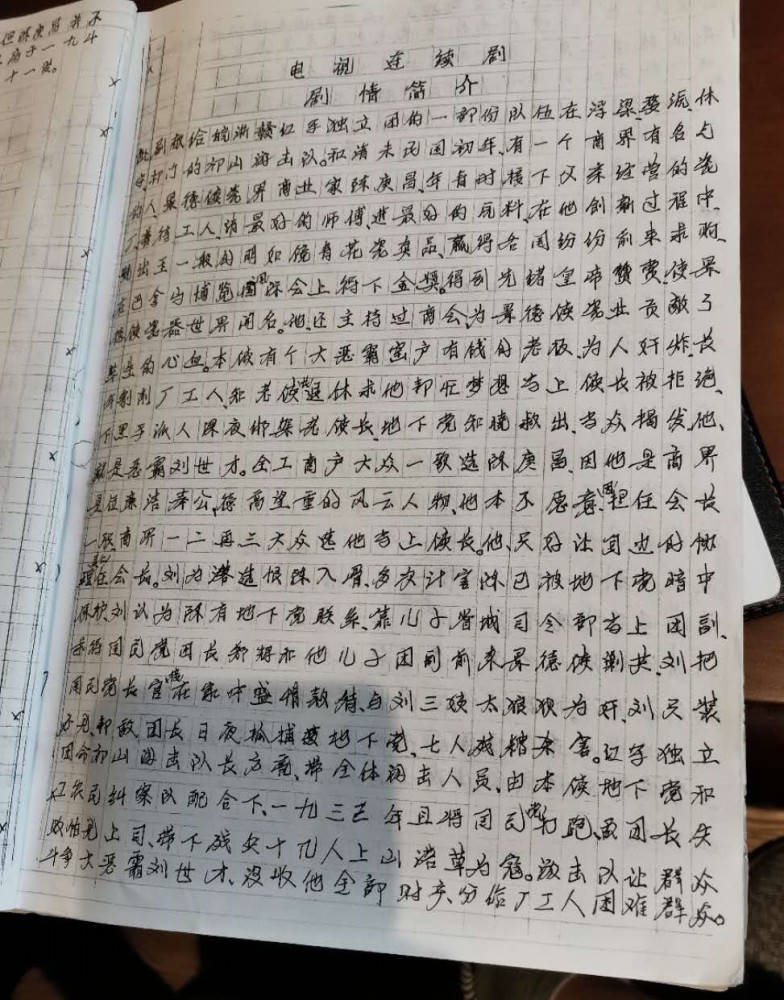 但陈庚昌并不
高于一九斗
十一哄。
电视连续剧
剧情简介
此剧根给皖浙赣红手独立团的一部份队伍在浮梁、婺沅、休
宁、祁门的祁山游击队。和清未民国初年、有一个商界有名与
的人、景德镇瓷界商业家陈庚昌、年青时、接下父亲经营的瓷
厂、善待工人、请最好的师傅、进最好的瓦料、在他创新过程中、
出玉一般的明如镜青花瓷奖品、赢得各国纷纷前来求购、
在巴拿马博览国际会上得下金奖。得到先绪皇帝赞赏、使景
德镇瓷器世界闻名。他还主持过商会、为景德镇瓷业贡献了
毕生的心血。本镇有个大恶霸窑户有钱的老板、为人奸诈、长
期剥削厂工人、和老镇长退休求他帮忙梦想当上镇长被拒绝、
下黑手派人深夜绑架老镇长、地下党知晓救出、当众揭发他、
就是恶霸刘世才。全工商户大众一致选陈庚昌、因他是商界
是位廉洁奉公、德高望重的风云人物、他本不愿意担任会长
一联商界一二再三大众选他当上镇长。他只好让
任会长。刘为潜选恨陈入骨、多次计害陈已被地下党暗中
保护、刘认为陈有地下党联系、靠儿子省城司令部当上团副、
国民党团长郑将和他儿子团副前来景德镇剿共、刘把
国民党长官在家中盛情款待、与刘三姨太狼狈为奸、刘又装
好兄、郑敌团长日夜抓捕地下党、七人残糟杀害。红字独立
团命祁山游击队长方亮、带全体游击人员、由本镇地下党和
工农民纠察队配合下、一九三三年且将国民党打跑、敌团长失
败怕见上司、带下残兵十几人上山落草为寇。激击队让群众
斗争大恶霸刘世才、没收他全部财产、分给厂工人困难群众。